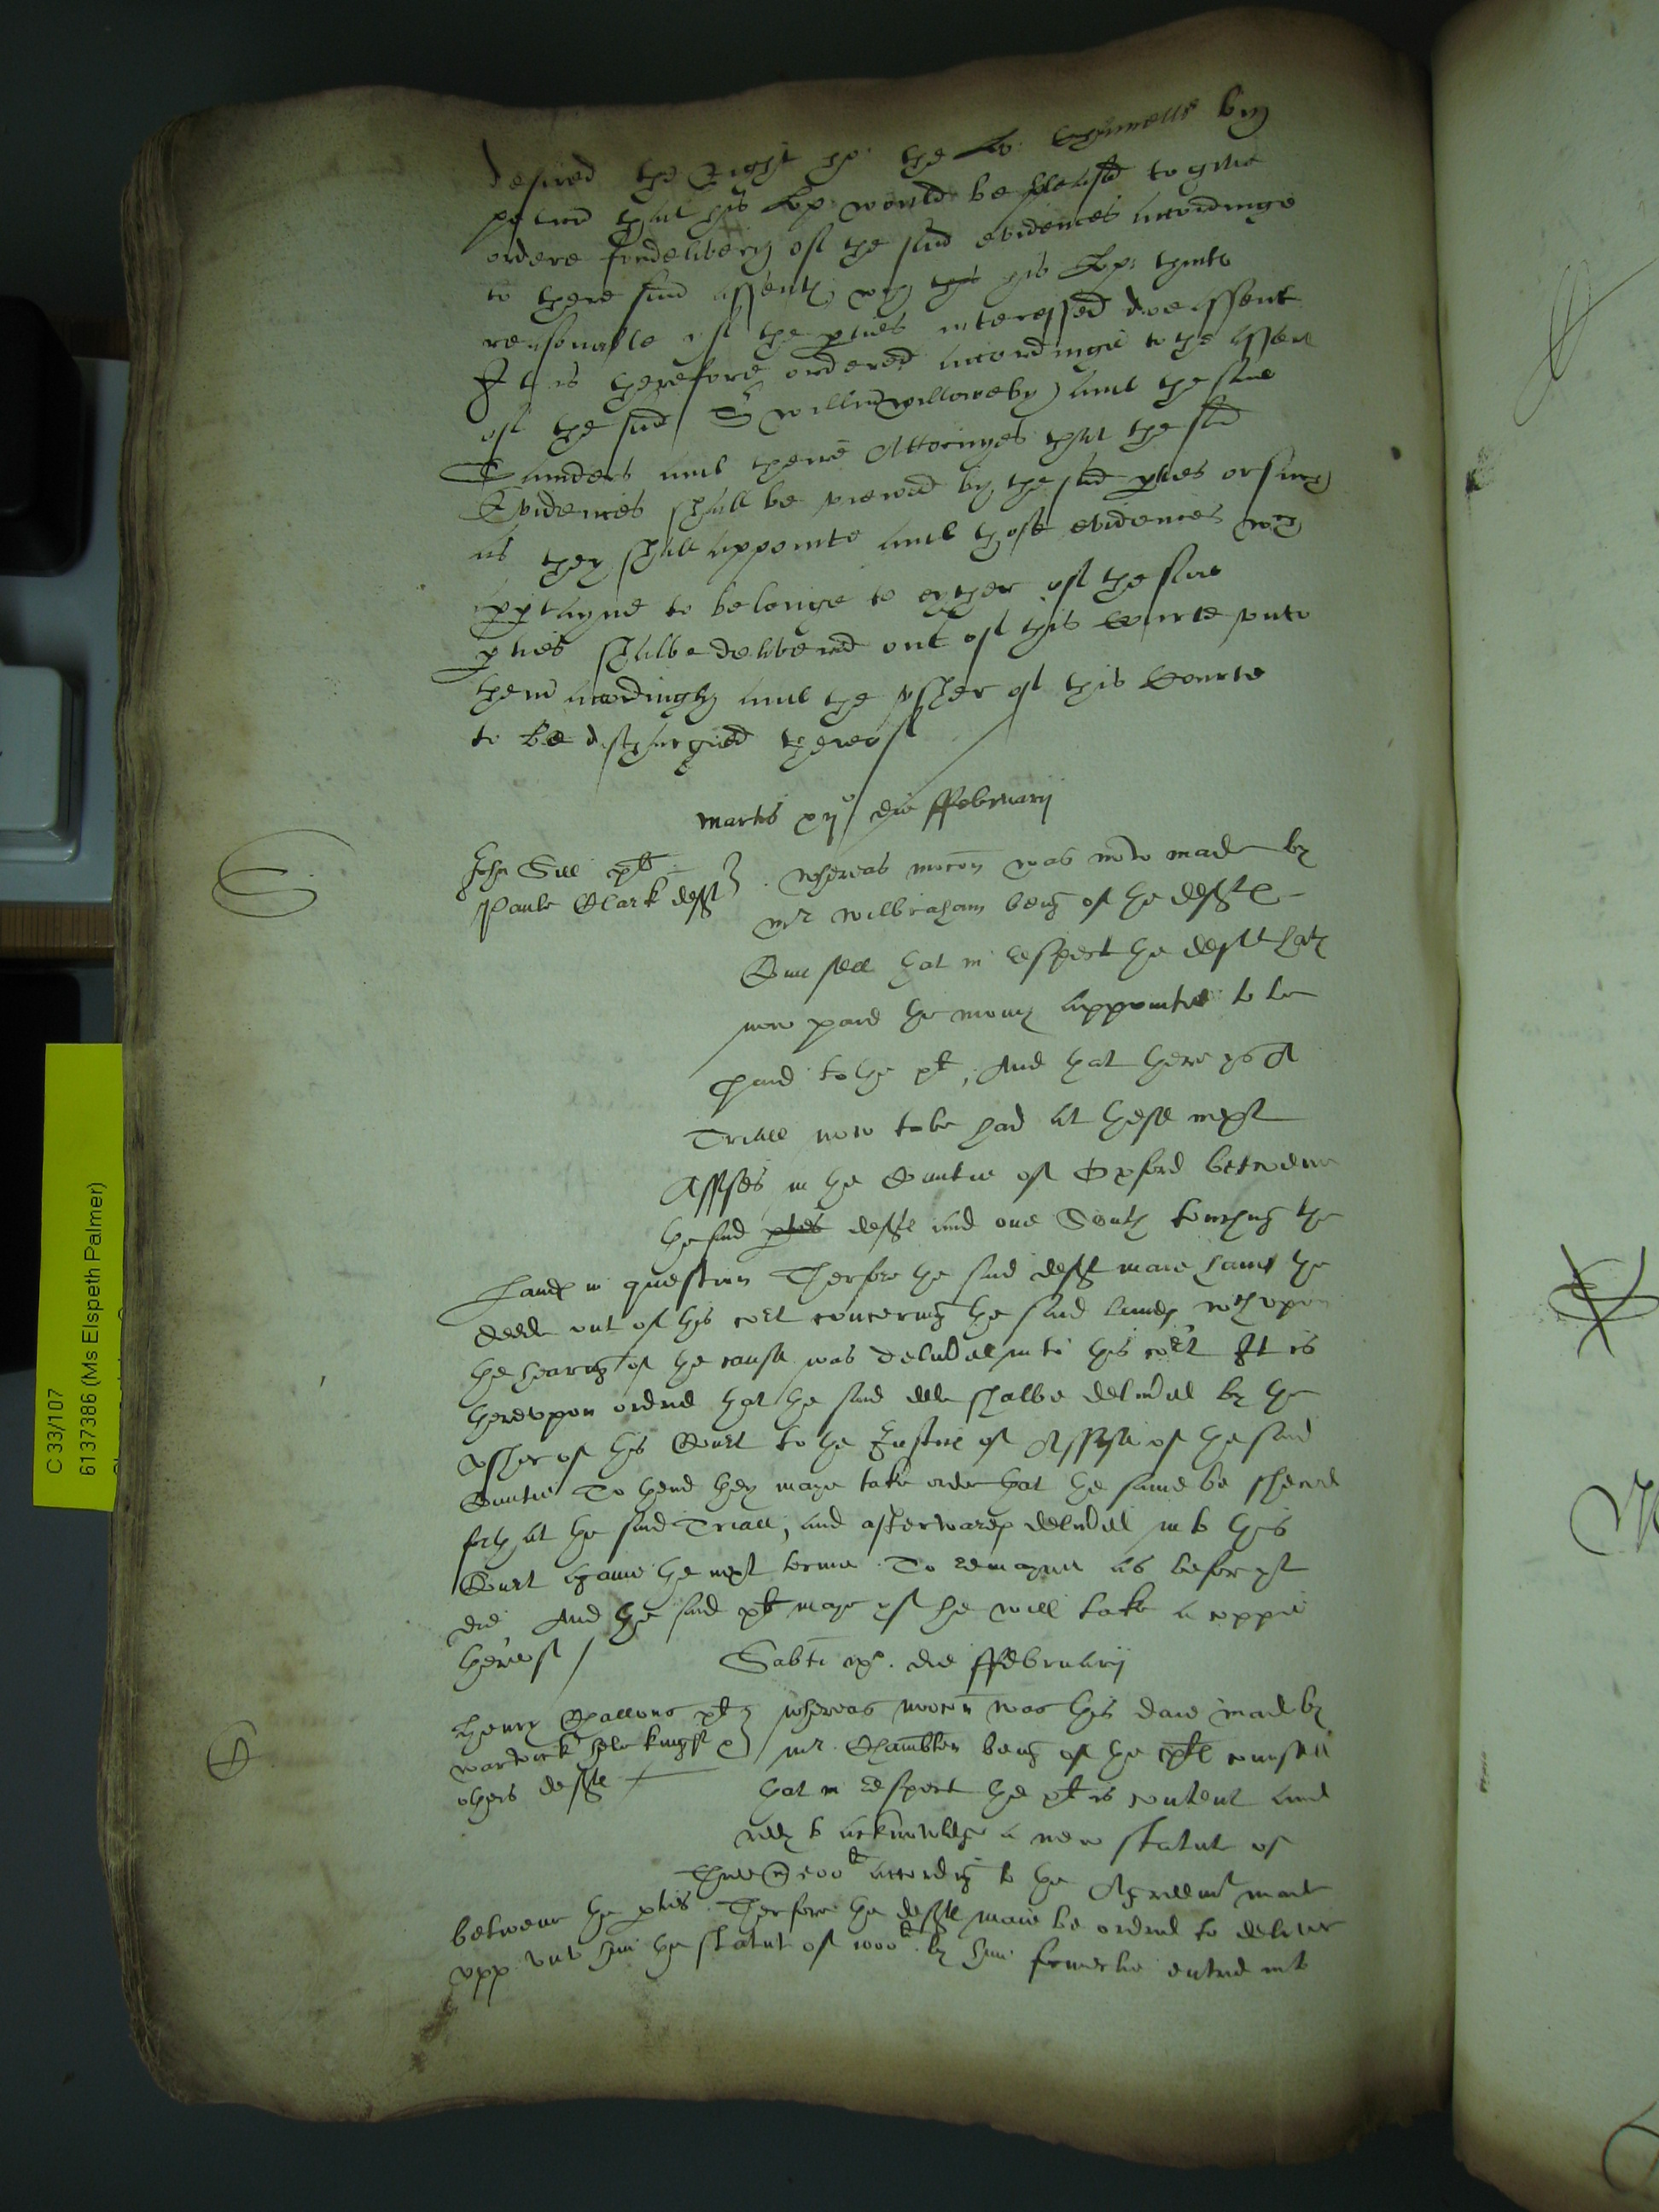 desired the Right ho: the Lo: by
peticion that his Lop: would be pleased to give
ordere for delivery of the said evidences accordinge
to there said assents, wch this his Lop: thinks
reasonable yf the pties interessed doe assent
It is therefore ordered accordinge to the assent
of the said Sr Willm Willoweby and the said
Saunders and there Attornyes that the said
Evidences shall be viewed by the said pties or such
as they shall appointe and those evidences wch
apptayne to belonge to eyther of the said
pties shalbe delivered out of this Courte unto
them accordingly and the ussher of this Courte
to be dischargeed thereof
Martis xijo die ffebruarij
John Sill plt
Paule Clark deft
Whereas mocon was now made by
mr Wilbraham being of the defts
Counsell that in respect the deft hath
now paid the money appointed to be
paid to the plt, And that there is a
Triall now to be had at these next
Assises in the Countie of Oxford betweene
the said pties deft and one South touching the
Lands in question Therfore the said deft maie have the
deede out of this cort concerning the said lands wch upon
the hearing of the cause was delivered into this cort It is
therupon ordred that the said deede shalbe delivered by the
Usher of this Court to the Justice of Assise of the said
Countie To thend they maye take order that the same be shewed
forth at the said Triall, and afterwards delivered into this
Court againe the next terme To remayne as before yt
did And the said plt maye yf he will take a coppie
therof
Sabti die ffebruarij
Henry plt
Warwick &
others defts
Whereas mocon was this daie made by
mr being of the plts counsell
that in respect the plt is content and
redy to acknowledge a new statut of
according to the Agreemt made
betwene the pties Therfore the defts maie be ordred to deliver
upp unto him the statut of 1000l by him formerlie entred into